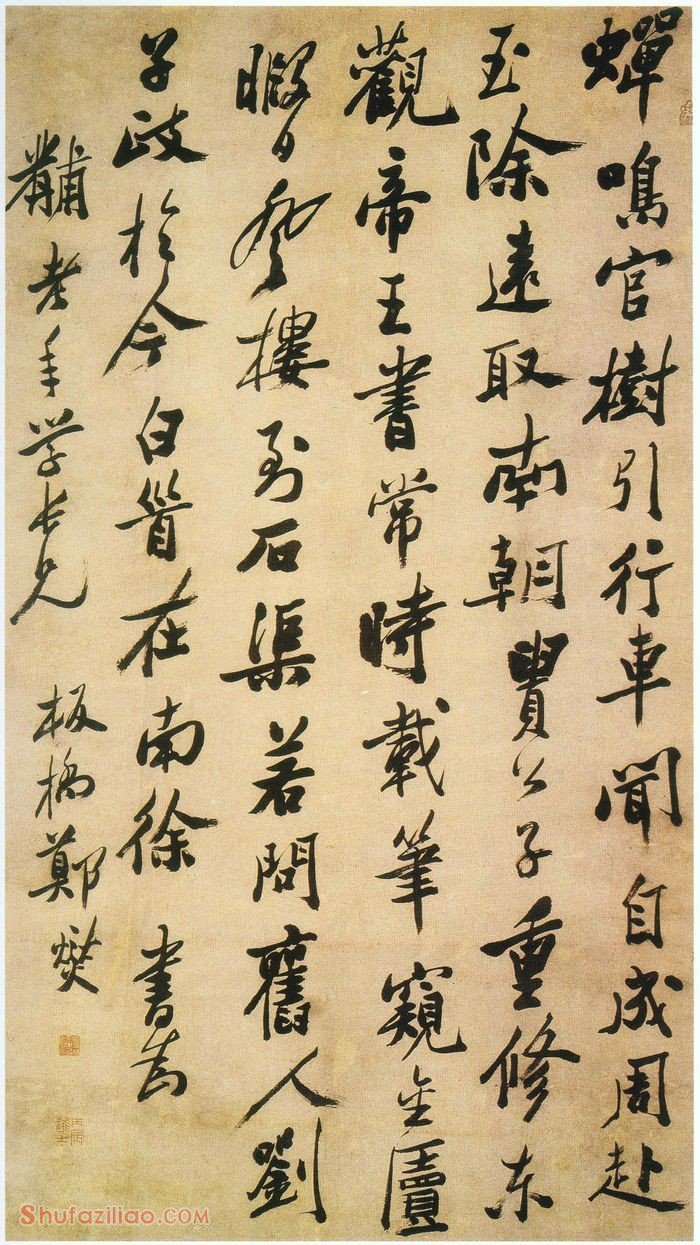 蟬鳴官樹引行車聞自成周赴
玉除遠取南朝貴公子重修东
觀帝王書常時載筆窺金匱
暇日登樓到石渠若問舊人劉
子政於今白首在南徐 書為
黼老年学长兄 板橋鄭燮
Shufaziliao.COM